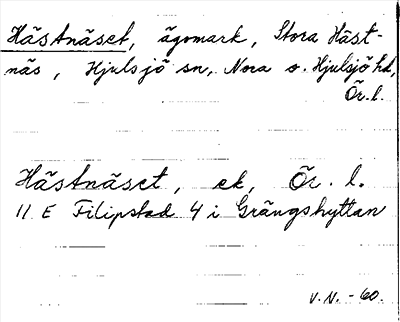 Hästnäset, ägomark, Stora Häst-
näs, Hjulsjö sn, Nora o. Hjulsjö hd,
Ör. l.
Hästnäset, ek, Ör. l.
11 E Filipstad 4 i Grängshyttan
V. N. - 60.